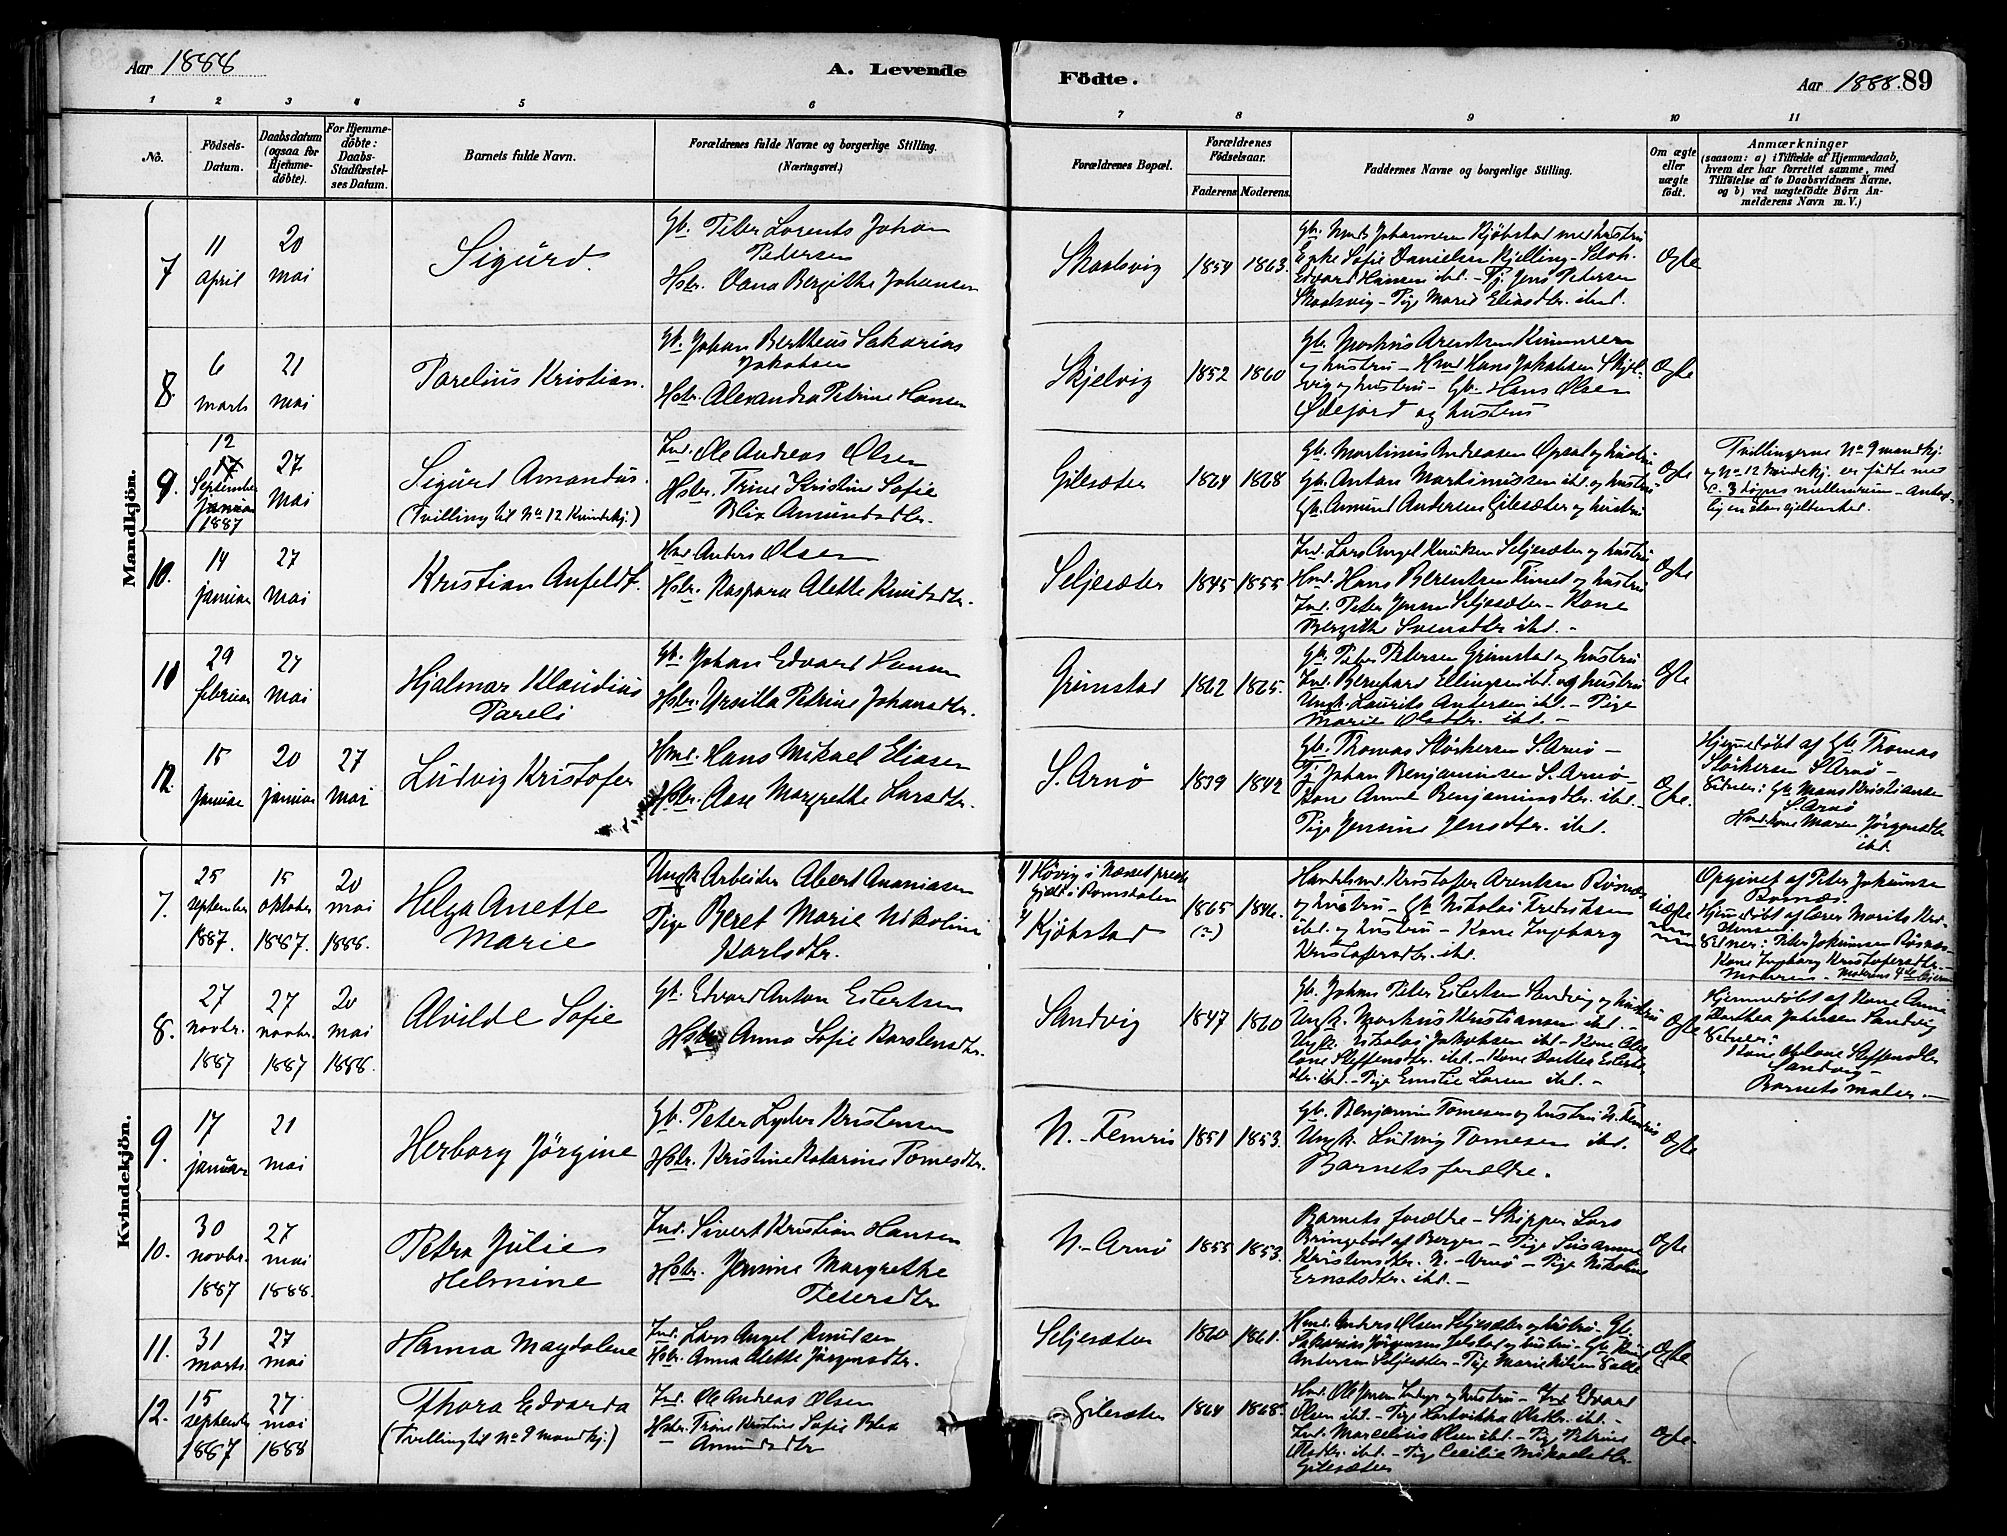 Aar 1888
A. Levende
Födte.
Aar 1888. 89
1 2 3 4 5 6 7 8 9 10 11
No.
Födsels-
Datum.
Daabsdatum
(ogsaa for
Hjemme-
döbte).
For Hjemme-
döbte:
Daabs-
Stadfæstel-
ses Datum.
Barnets fulde Navn.
Forældrenes fulde Navne og borgerlige Stilling.
(Næringsvei.)
Forældrenes Bopæl.
Forældrenes
Födselsaar.
Faderens. Moderens.
Faddernes Navne og borgerlige Stilling.
Om ægte
eller
uægte
födt.
Anmærkninger
(saasom: a) i Tilfælde af Hjemmedaab,
hvem der har forrettet samme, med
Tilföielse af to Daabsvidners Navne,
og b) ved uægtefödte Börn An-
melderens Navn m. V.)
Mandkjön.
7
11
April
20
Mai
Sigurd.
Gb. Peter Lorents Johan
Pedersen
Hstr. Dana Bergithe Johansen
Skaalsvig
1854 1863.
Edvard Hansen ibd. – Tj. Jens Petersen
Skaalsvig – Pige Marie Eliasdtr. ibd.
Ægte
8.
6
Marts
21
Mai
Parelius Kristian.
Gb. Johan Bertheus Sakarias
Jakobsen
Hstr. Alexandra Petrine Hansen
Skjelvig
1852 1860
og hustru – Hmd Hans Jakobsen Skjel-
vig og hustru – Gb. Hans Olsen
og hustru
Ægte
9.
12
September
1887
27
Mai
Sigurd Amandus.
(Tvilling til No 12 Kvindekj.)
Ind. Ole Andreas Olsen
Hstr. Trine Kristine Sofie
Blix Amundsdtr.
Gilesæter
1864 1868
Gb. Martinus Andreasen Opsal og hustru
Gb. Anton Martinussen ibd. og hustru
Gb. Amund Andersen Gilesæter og hustru
Ægte
Tvillingerne No 9 mandkj.
og No 12 kvindekj. er födte med
c. 3 dögns mellemrum –
10.
14
Januar
27
Mai
Kristian Anfeldt.
Hmd Anders Olsen
Hstr. Kaspara Alette Knudsdtr.
Seljesæter
1845 1855
Ind. Lars Angel Knudsen Seljesæter og hustru
Hmd. Hans Berentsen og hustru
Ind. Peter Jensen Seljesæter – Kone
Bergithe Svensdtr ibd. –
Ægte
11
29
Februar
27
Mai
Hjalmar Klaudius
Pareli
Gb. Johan Edvard Hansen
Hstr. Ursilla Petrine Johansdtr.
Grimstad
1862 1865.
Gb. Peter Petersen Grimstad og hustru
Ind. Bernhard Ellingsen ibd. og hustru
Ungk. Laurits Andersen ibd. – Pige
Marie Olsdtr. ibd. –
Ægte
12.
15
Januar
20
Januar
27
Mai
Ludvig Kristofer
Hmd. Hans Mikael Eliasen
Hstr. Aase Margrethe Larsdtr.
S. Arnö
1839 1842
Gb. Thomas Störkersen S. Arnö –
Tj. Johan Benjaminsen S. Arnö –
Kone Anne Benjaminsdtr. ibd. –
Pige Jensine Jensdtr. ibd.
Ægte.
Hjemmedöbt af Gb. Thomas
Störkersen S. Arnö –
Vidner: Gb. Mons Kristiansen
S. Arnö
Hmd.kone Maren Jörgensdtr
ibd.
Kvindekjön.
7.
25
September
1887.
15
Oktober
1887.
20
Mai
1888.
Helga Anette
Marie
Ungk Arbeider Albert Ananiasen
Pige Beret Marie Nikoline
Karlsdtr.
1) Hövig i Næsset præste-
gjeld i Romsdalen
2) Kjöbstad
1865
(?)
1846.
Handelsmd. Kristofer Arentsen Rösnes
og hustru – Gb. Nikolai Fredriksen
ibd. og hustru – Kone Ingeborg
Kristofersdtr. ibd.
Uægte
Opgivet af Peter Jokumsen
Hjemmedöbt af Lærer Morits
Vidner: Peter Jokumsen Rösnes –
Kone Ingborg Kristofersdtr. –
8.
27
Novbr.
1887
27
Novbr.
1887
20
Mai
1888.
Alvilde Sofie
Gb. Edvard Anton Eilertsen
Hstr. Anna Sofie Karstensdtr.
Sandvig
1847 1860
Gb. Johan Peter Eilertsen Sandvig og hustru
Ungk. Markus Kristiansen ibd. –
Ungk. Nikolai Jakobsen ibd. – Kone
Steffensdtr. ibd. – Kone Dorthea Eilerts-
dtr. ibd. – Pige Emilie Larsen ibd. –
Ægte
Hjemmedöbt af Kone Anne
Dorthea Johnsen Sandvig
Vidner:
Kone Steffensdtr
Sandvig –
Barnets moder. –
9.
17
Januar
21
Mai
Herborg Jörgine
Gb. Peter Lyder Kristensen
Hstr. Kristine Katarine Tomesdtr.
N. – Femris
1851 1853.
Gb. Benjamin Tomesen og hustru N. Femris
Ungk. Ludvig Tomesen ibd.
Barnets forældre.
Ægte
10.
30
Novbr.
1887
27
Mai
1888.
Petra Julie
Helmine
Ind. Sivert Kristian Hansen
Hstr. Jensine Margrethe
Petersdtr
N. – Arnö
1855 1853.
Barnets forældre – Skipper Lars
Bringeböl af Bergen – Pige Susanne
Kristensdtr. N. – Arnö – Pige Nikoline
Ernstsdtr. ibd. –
Ægte
11.
31
Marts
27
Mai
Hanna Magdalene
Ind. Lars Angel Knudsen
Hstr. Anna Alette Jörgensdtr.
Seljesæter
1860 1861.
Hmd. Anders Olsen Seljesæter og hustru – Gb.
Sakarias Jörgensen og hustru –
Andersen Seljesæter – Pige
Ægte
12.
15
September
1887
27
Mai
1888
Thora Edvarda
(Tvilling til No 9 mandkj.)
Ind. Ole Andreas Olsen
Hstr. Trine Kristine Sofie Blix
Amundsdtr
Gilesæter
1864 1868.
Hmd. Ole Jensen og hustru – Ind. Edvard
Olsen ibd. – Pige Hartvikka Olsdtr. ibd. –
Ind. Marcelius Olsen ibd. – Pige Petrine
Olsdtr. ibd. – Pige Cecilie Mikaelsdtr.
Gilesæter
Ægte